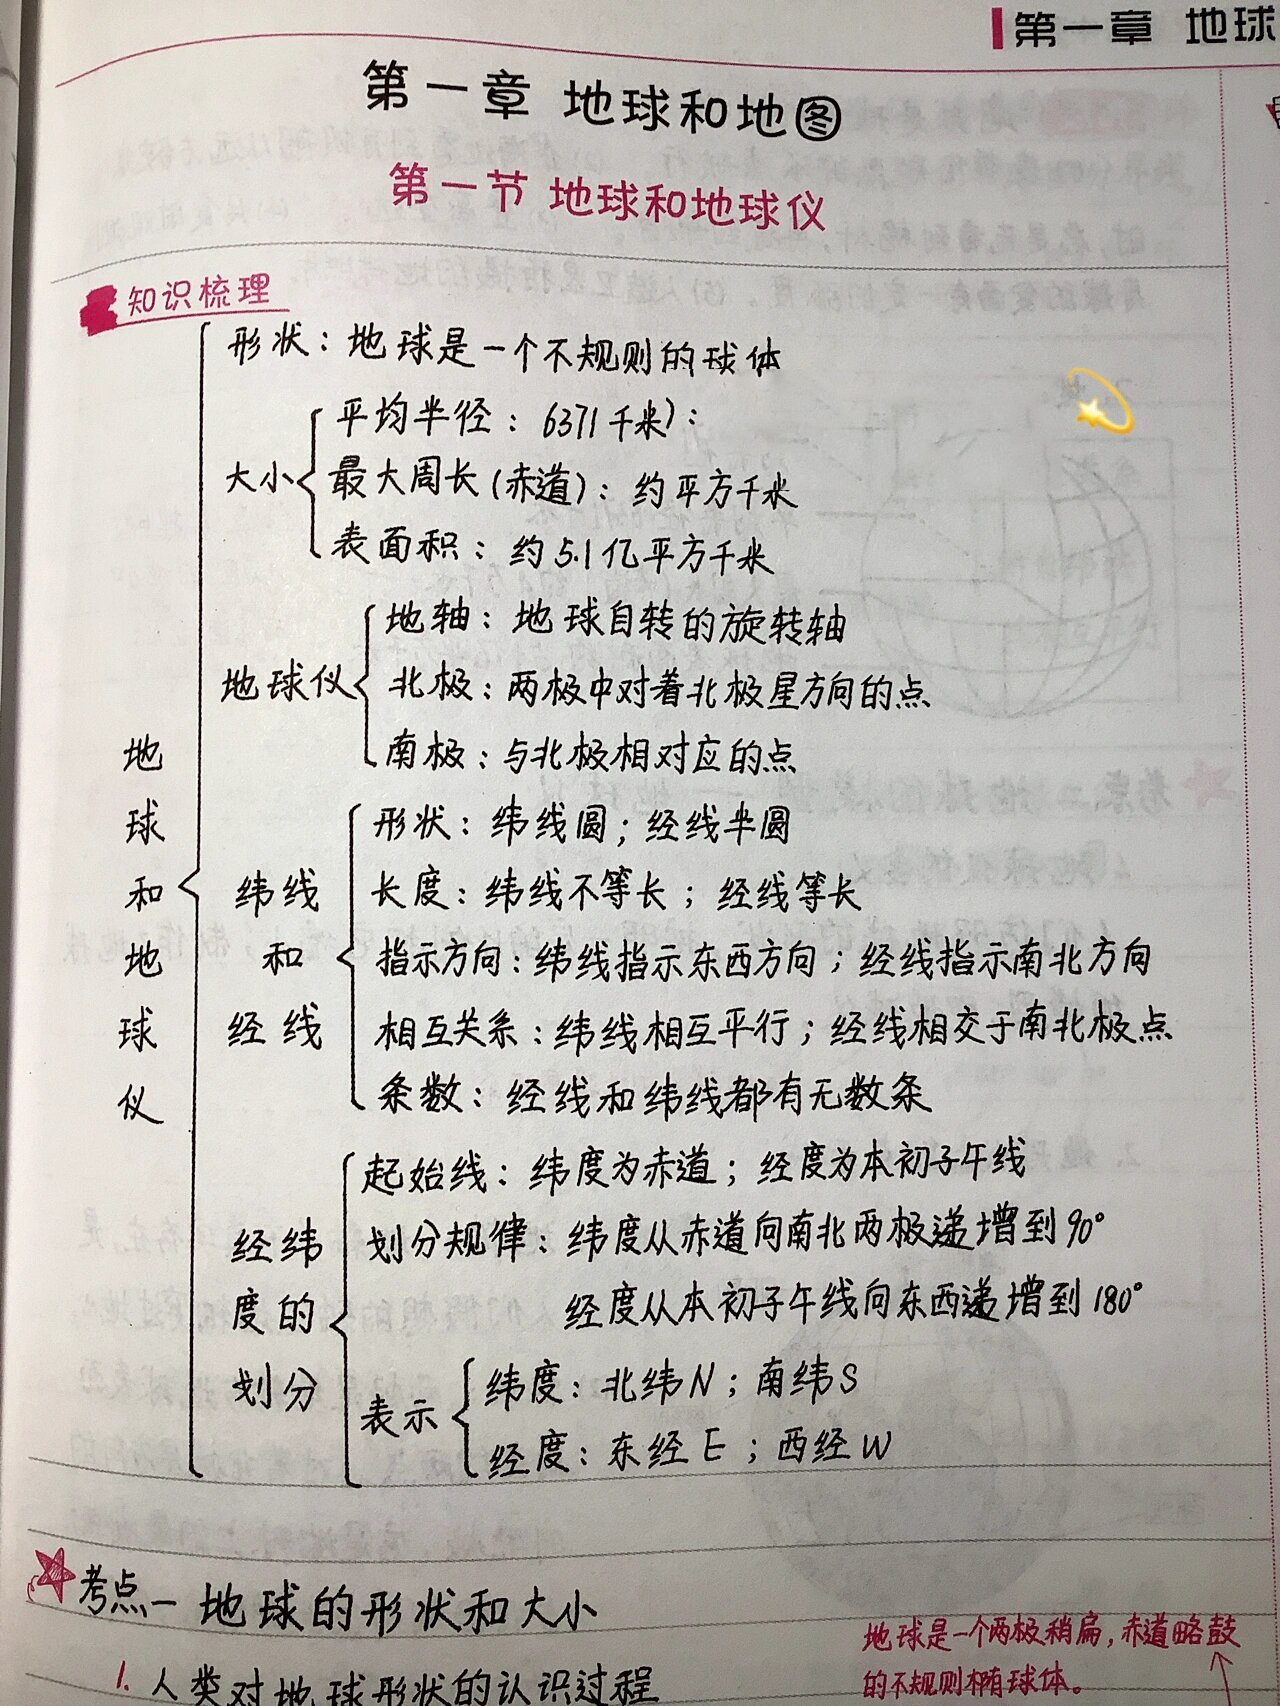 第一章 地球
第一章 地球和地图
第一节 地球和地球仪
知识梳理
形状：地球是一个不规则的球体
平均半径：6371千米）：
大小
最大周长（赤道）：约平方千米
表面积：约5.1亿平方千米
地轴：地球自转的旋转轴
地球仪
北极：两极中对着北极星方向的点
南极：与北极相对应的点
地球和地球仪
形状：纬线圆；经线半圆
纬线和经线
长度：纬线不等长；经线等长
指示方向：纬线指示东西方向；经线指示南北方向
相互关系：纬线相互平行；经线相交于南北极点
条数：经线和纬线都有无数条
起始线：纬度为赤道；经度为本初子午线
经纬度的划分
划分规律：纬度从赤道向南北两极递增到90°
经度从本初子午线向东西递增到180°
表示
纬度：北纬N；南纬S
经度：东经E；西经W
考点一 地球的形状和大小
地球是一个两极稍扁，赤道略鼓
的不规则椭球体。
1.人类对地球形状的认识过程